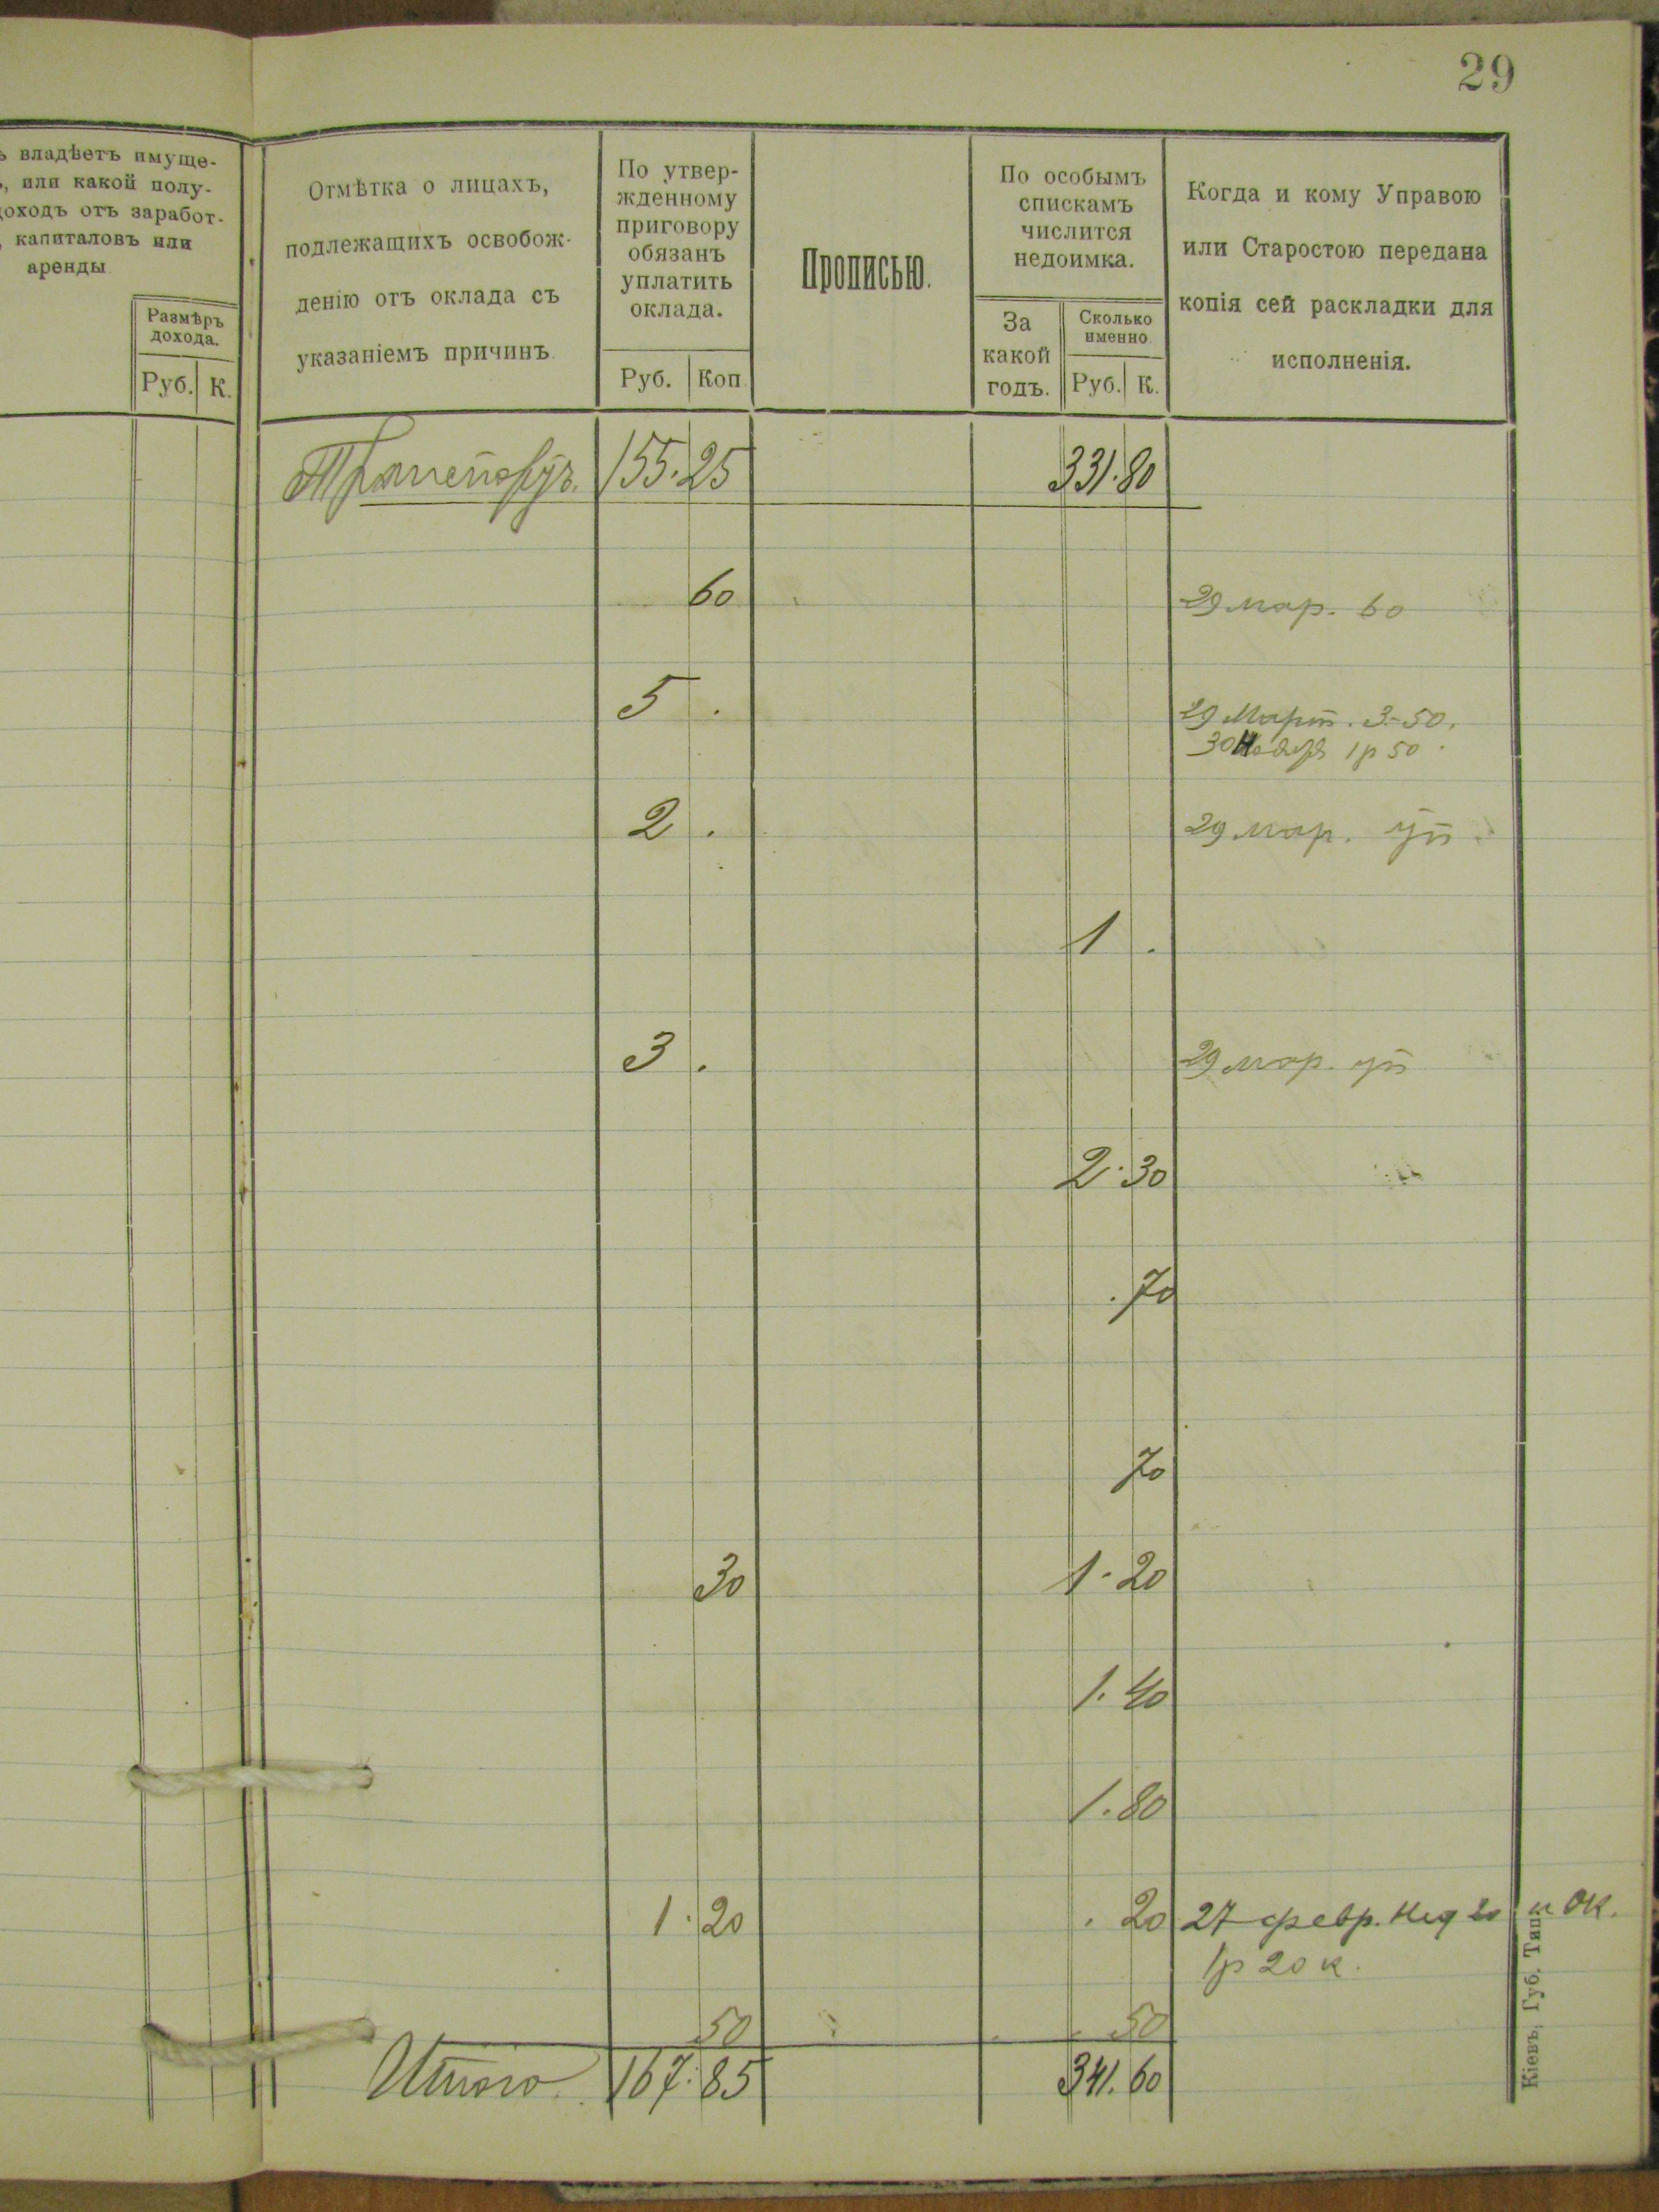 29
ъ владѣетъ имуще-
ъ, или какой полу-
доходъ отъ заработ-
, капиталовъ или
аренды.
Размѣръ
дохода.
Руб. К.
Отмѣтка о лицахъ,
подлежащихъ освобож-
денію отъ оклада съ
указаніемъ причинъ.
По утвер-
жденному
приговору
обязанъ
уплатить
оклада.
Руб. Коп.
Прописью.
По особымъ
спискамъ
числится
недоимка.
За
какой
годъ.
Сколько
именно.
Руб. К.
Когда и кому Управою
или Старостою передана
копія сей раскладки для
исполненія.
Транспортъ. 155.25 331.80
60 29 мар. 60
5 . 29 Март. 3-50.
30 Ноября 1р 50.
2 . 29 мар. уп.
1 .
3 . 29 мар. уп
2.30
. 70
70
30 1.20
1.40
1.80
1.20 . 20 27 февр. Нед 20 и ок.
1р 20 к.
50 50
Итого 167.85 341.60
Кіевъ, Губ. Тип.